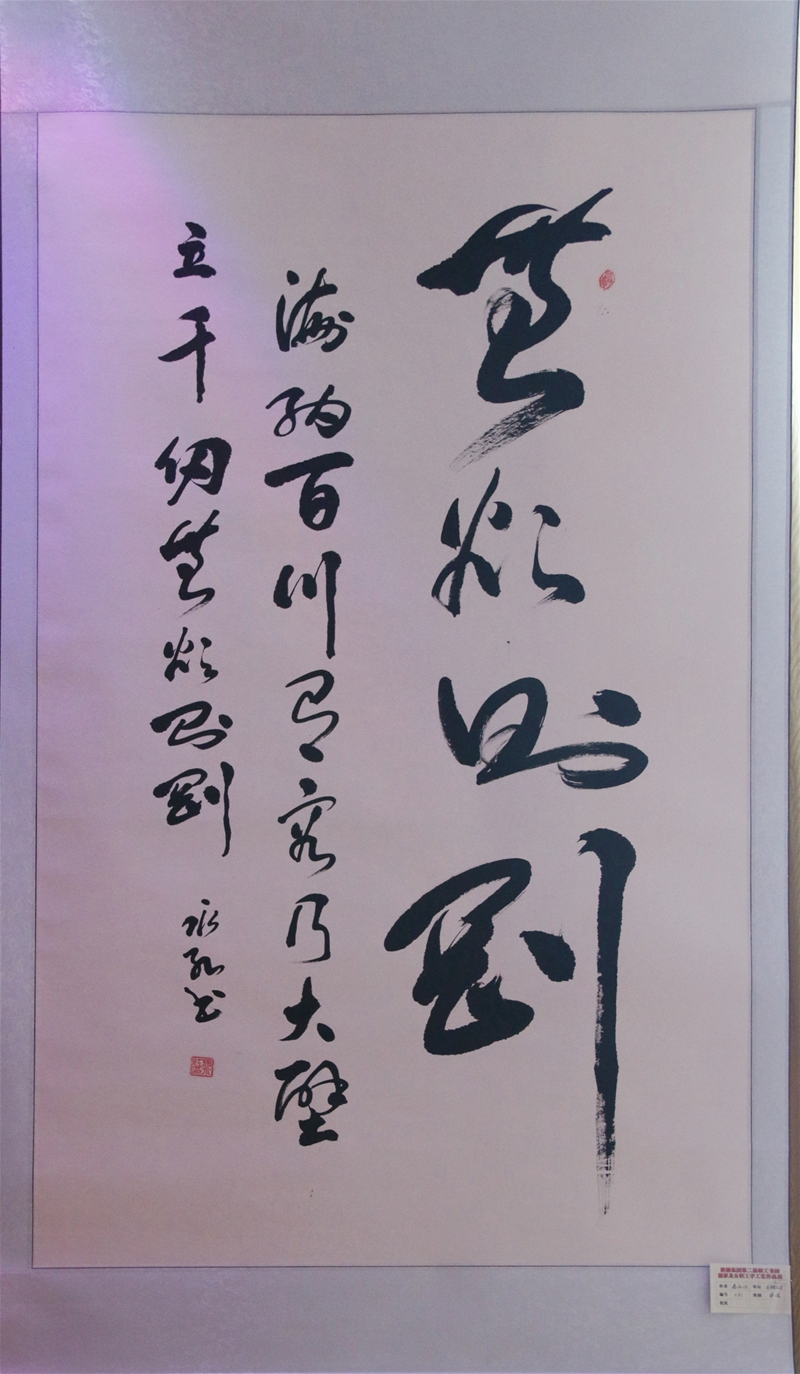 無欲則剛
海納百川有容乃大壁
立千仞無欲則剛 永孔书